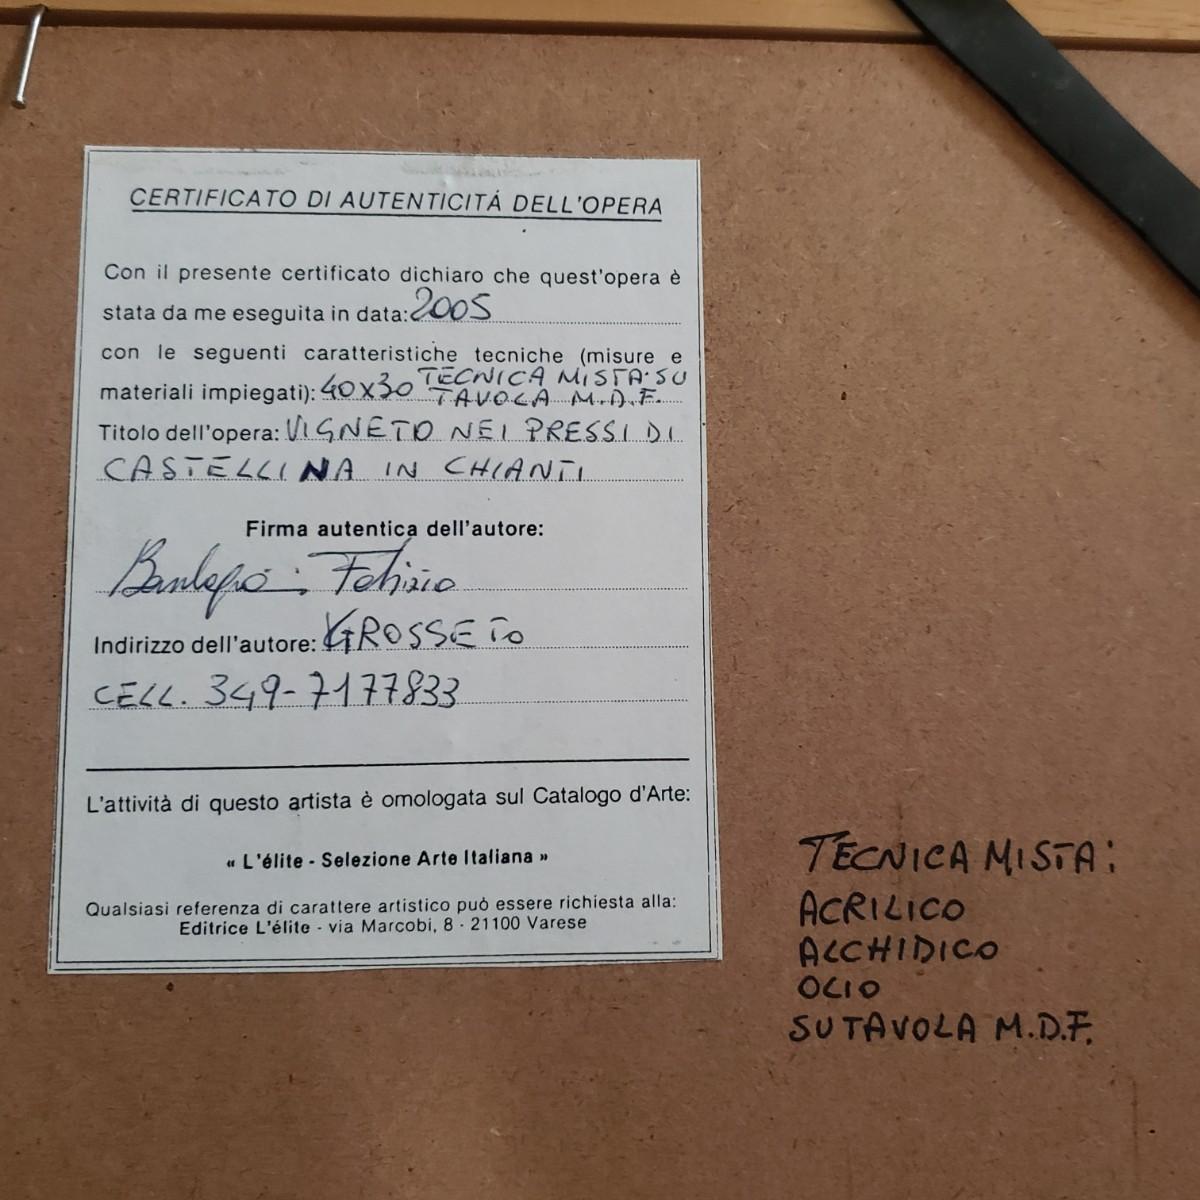 CERTIFICATO DI AUTENTICITÁ DELL'OPERA
Con il presente certificato dichiaro che quest'opera è
stata da me eseguita in data: 2005
con le seguenti caratteristiche tecniche (misure e
materiali impiegati): 40x30 TECNICA MISTA SU
TAVOLA M.D.F.
Titolo dell'opera: VIGNETO NEI PRESSI DI
CASTELLINA IN CHIANTI
Firma autentica dell'autore:
Indirizzo dell'autore: GROSSETO
CELL. 349-7177833
L'attività di questo artista è omologata sul Catalogo d'Arte:
« L'élite - Selezione Arte Italiana »
Qualsiasi referenza di carattere artistico può essere richiesta alla:
Editrice L'élite - via Marcobi, 8 - 21100 Varese
TECNICA MISTA:
ACRILICO
ALCHIDICO
OLIO
SU TAVOLA M.D.F.